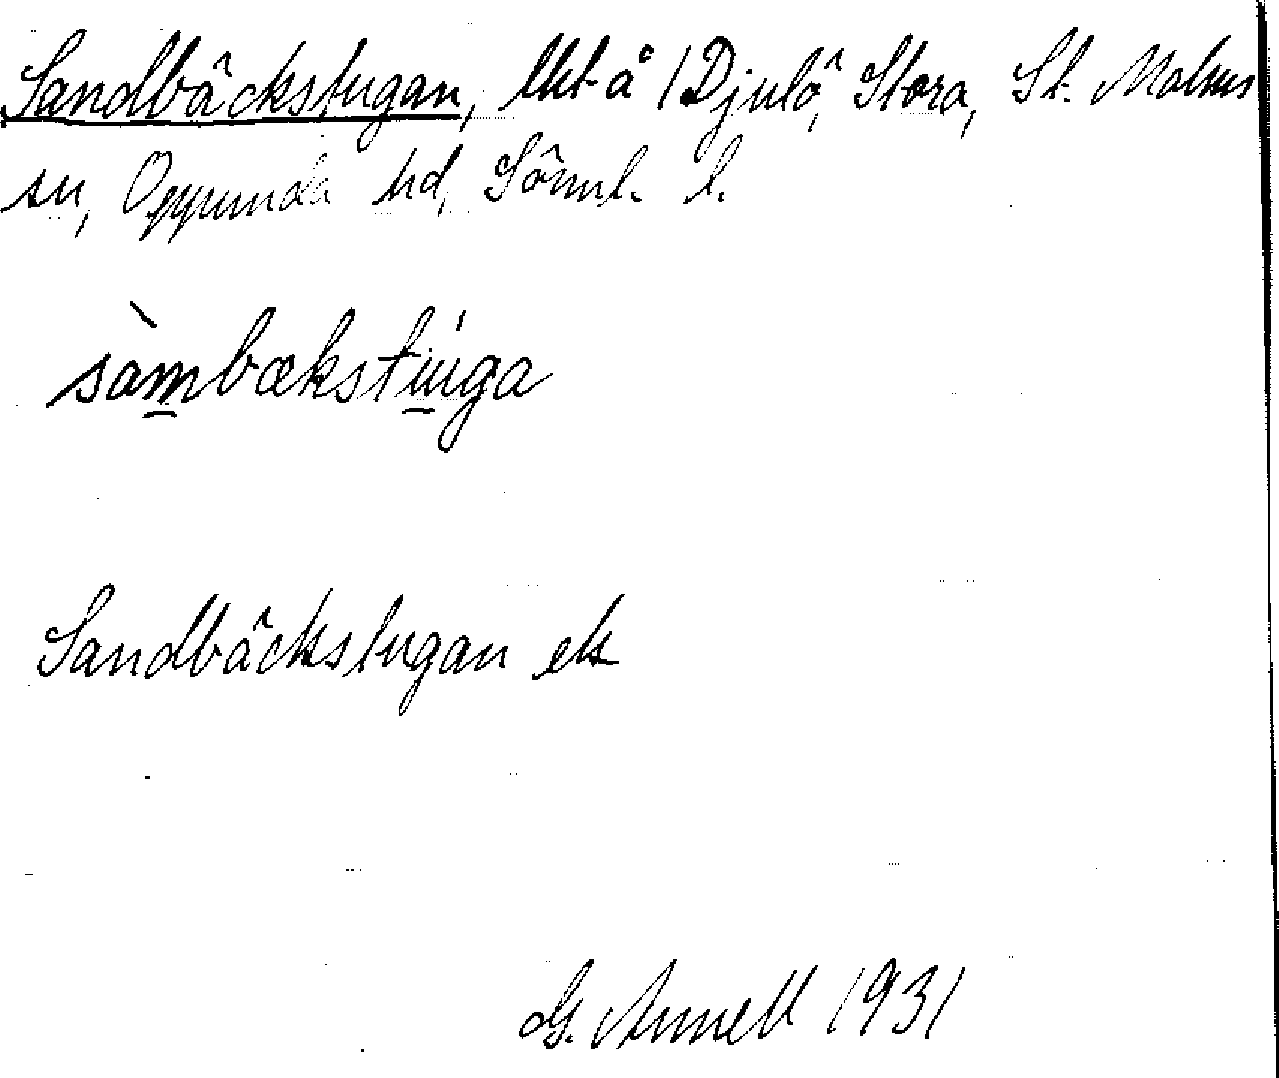 Sandbäckstugan, lht å /Djulö, Stora, St. Malms
sn, Oppunda hd, Söml. l.
sàmbækstuga
Sandbäckstugan ek
G. Annell 1931